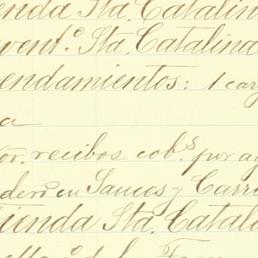 enda Sta. Catalin
vent.º Sta. Catalina
endamientos: 1 carp
a
or. recibos cob.s por ag
deró en Sauces y Carr
ienda Sta. Catal